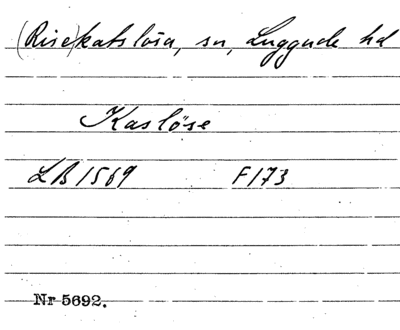 (Rise)katslösa, sn, Luggude hd
Kaslöse
LB 1569 F173
Nr 5692.